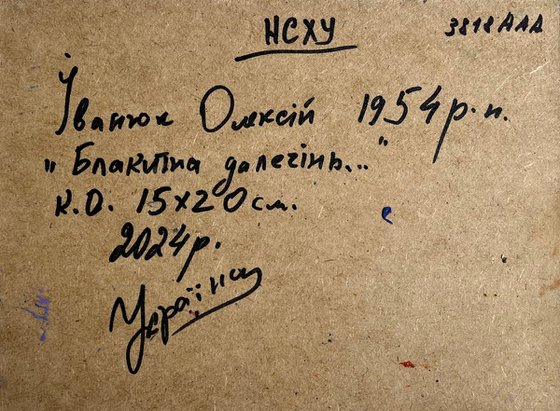 НСХУ
3818ААА
Іванюк Олексій 1954р.н.
"Блакитна далечінь..."
К.О. 15х20см.
2024р.
Україна